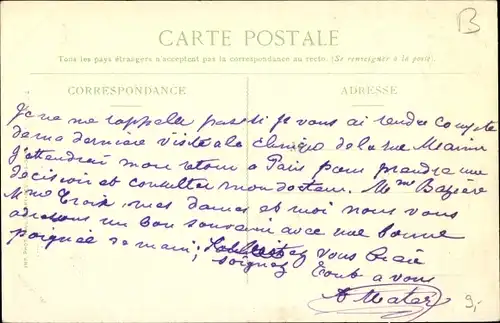 B
CARTE POSTALE
Tous les pays étrangers n'acceptent pas la correspondance au recto. (Se renseigner à la poste).
CORRESPONDANCE
ADRESSE
Je ne me rappelle pas si je vous ai rendu compte
de ma derniere visite a la clinique de la rue
J'attendrai mon retour a Paris pour prendre une
decision et consulter mon docteur. Me
Mme Croix, mes dames et moi nous vous
adressons un bon souvenir avec une bonne
poignée de main; vous bien
soignez Tout a vous
A Mater
9,-